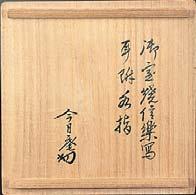 御室焼信樂写
耳附水指
今日庵